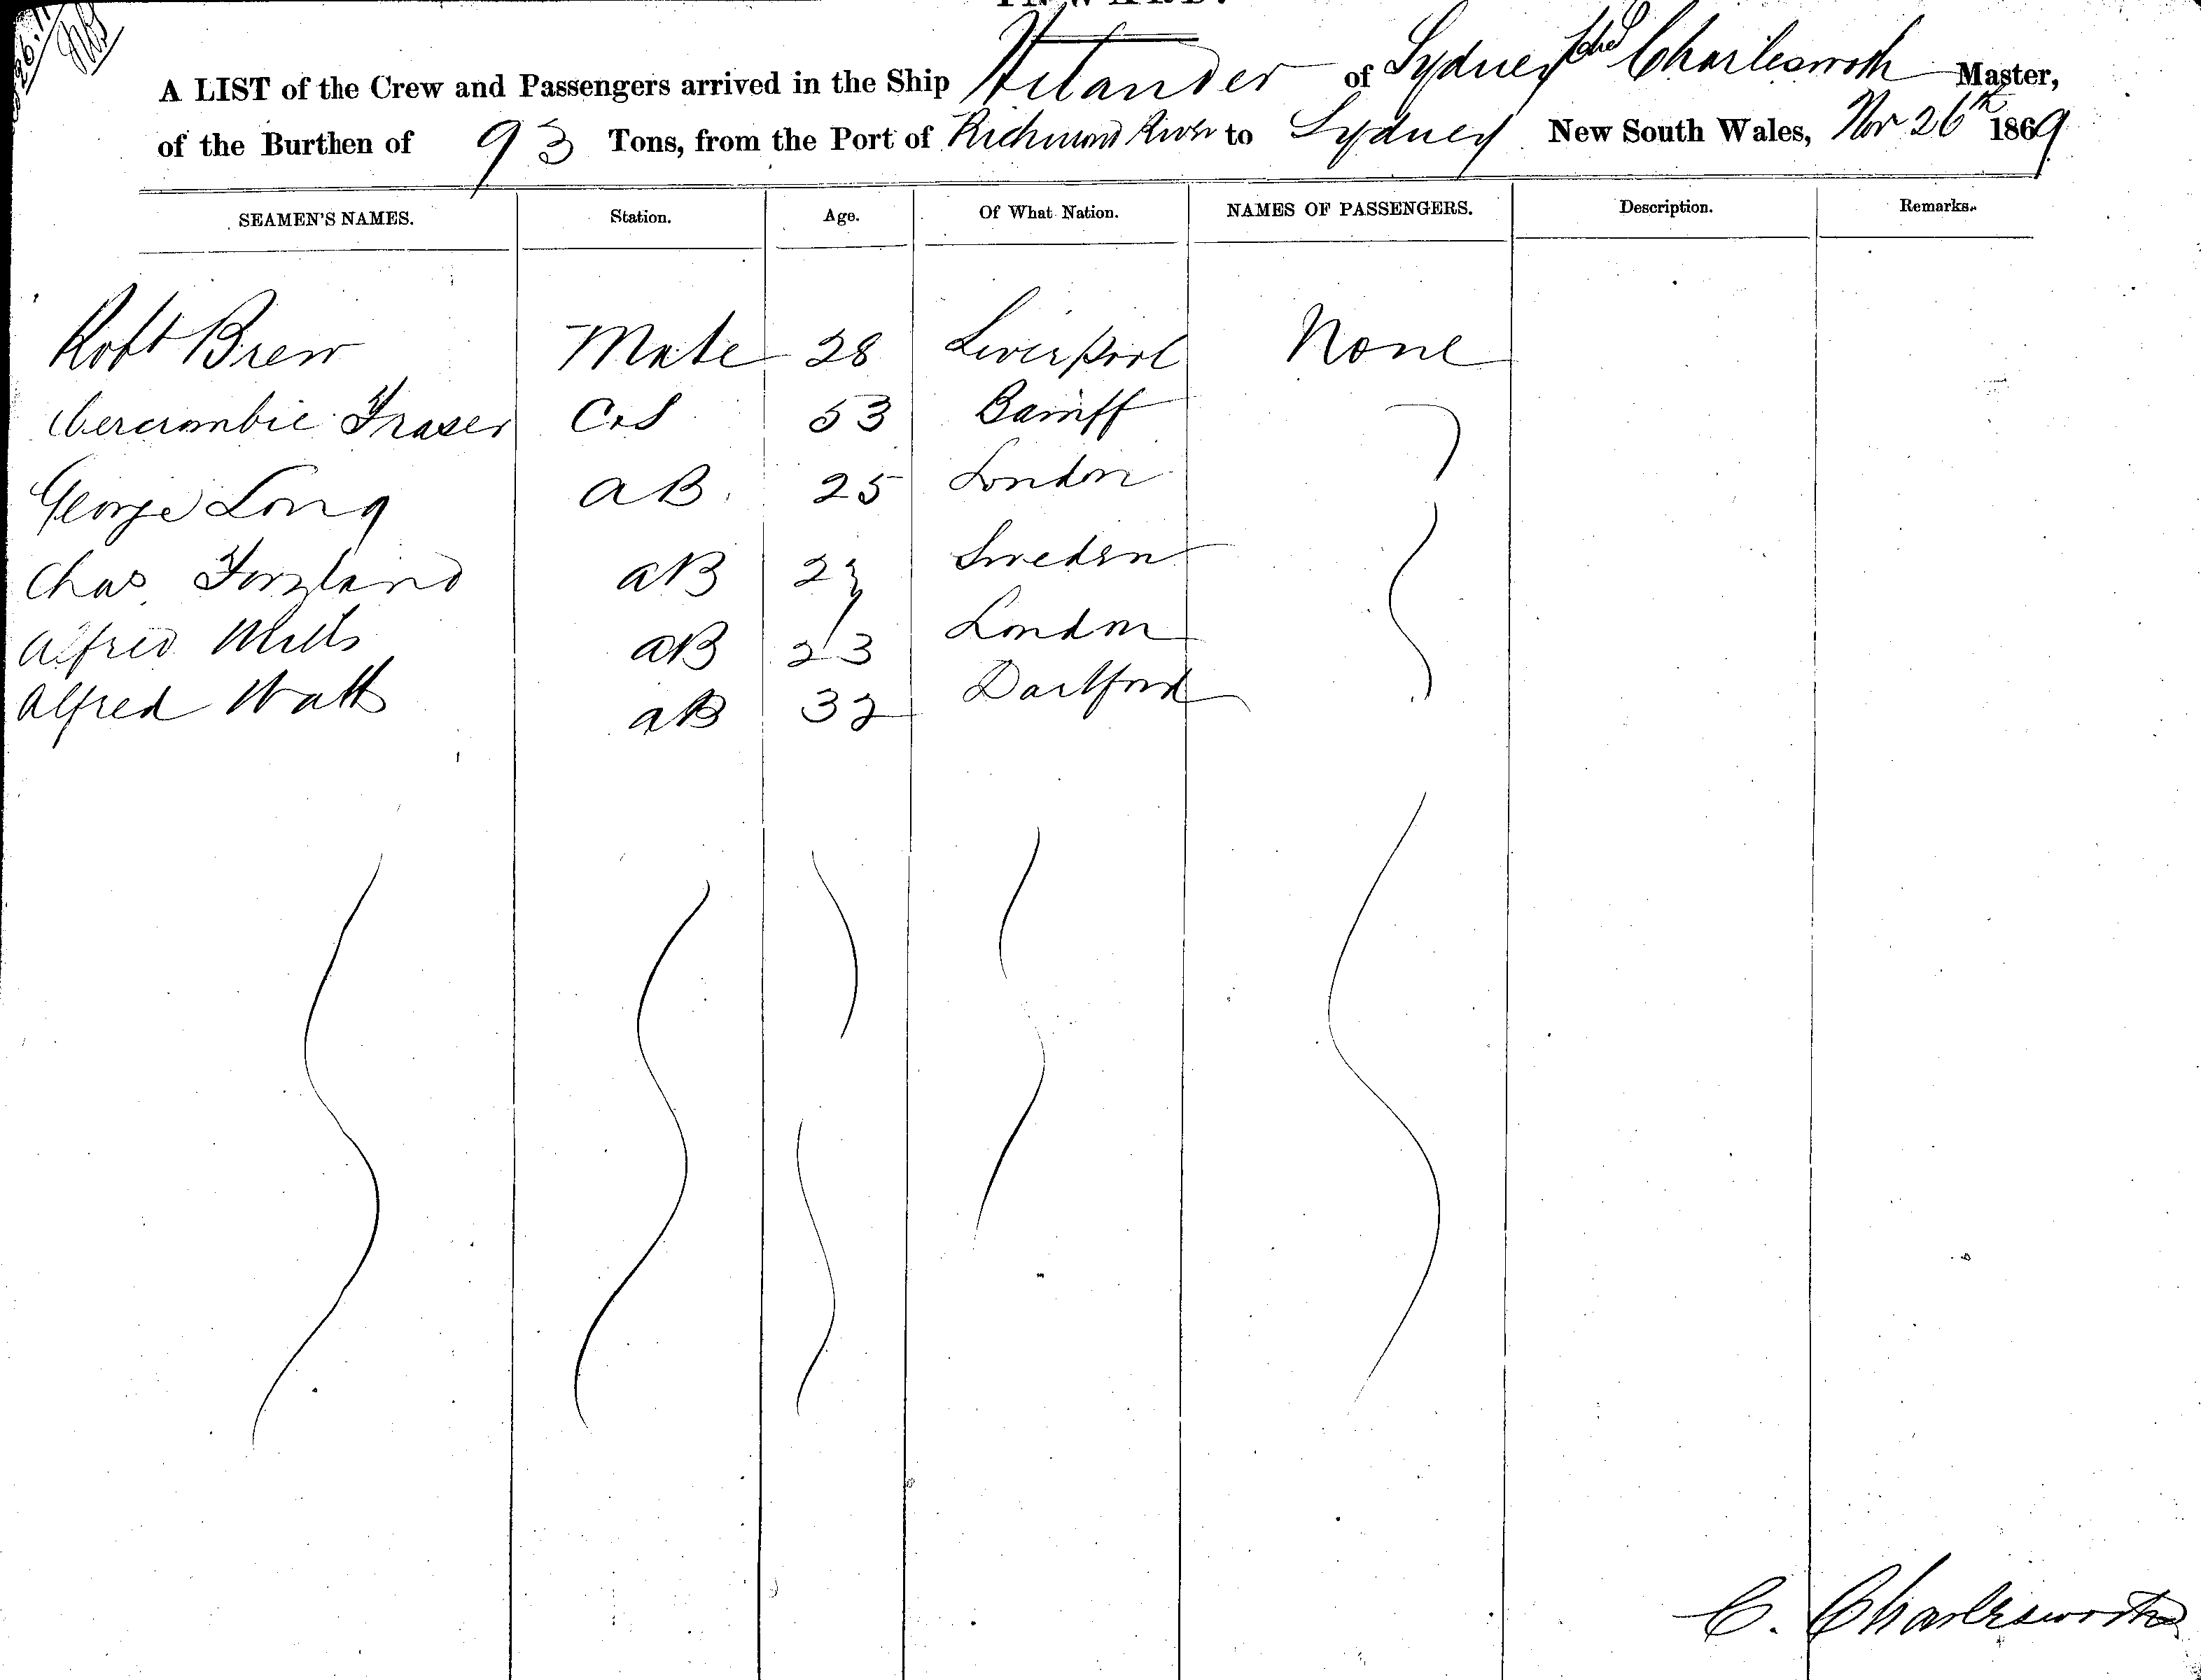 INWARD.
A LIST of the Crew and Passengers arrived in the Ship Hilander of Sydney Charlesworth Master,
of the Burthen of 93 Tons, from the Port of Richmond River to Sydney New South Wales, Nov 26th 1869
SEAMEN'S NAMES. Station. Age. Of What Nation. NAMES OF PASSENGERS. Description. Remarks.
Robt Brew Mate 28 Liverpool None
Abercrombie Fraser C&S 53 Banff
George Long AB. 25 London
Chas. AB Sweden
Alfred Mills AB 23 London
Alfred Watts AB 32 Dartford
C. Charlesworth